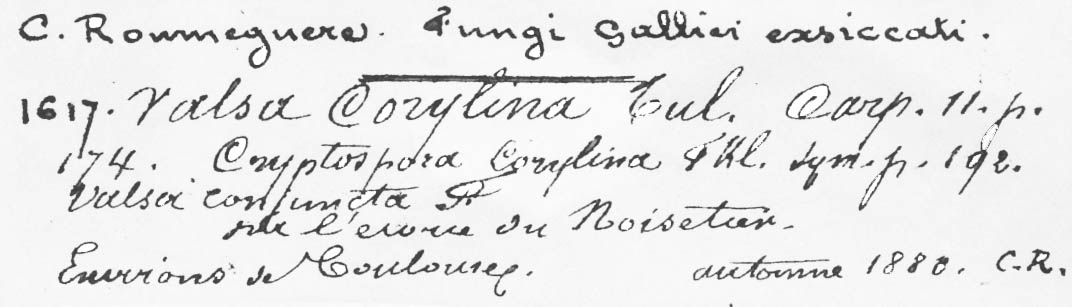 C. Roumeguere. Fungi Gallici exsiccati.
1617. Valsa Corylina Tul. Carp. 11. p.
174. Cryptospora Corylina Fkl. Sym. p. 192.
Valsa conjuncta F
sur l'ecorce du Noisetier.
Environs de Toulouse.
automne 1880. C.R.